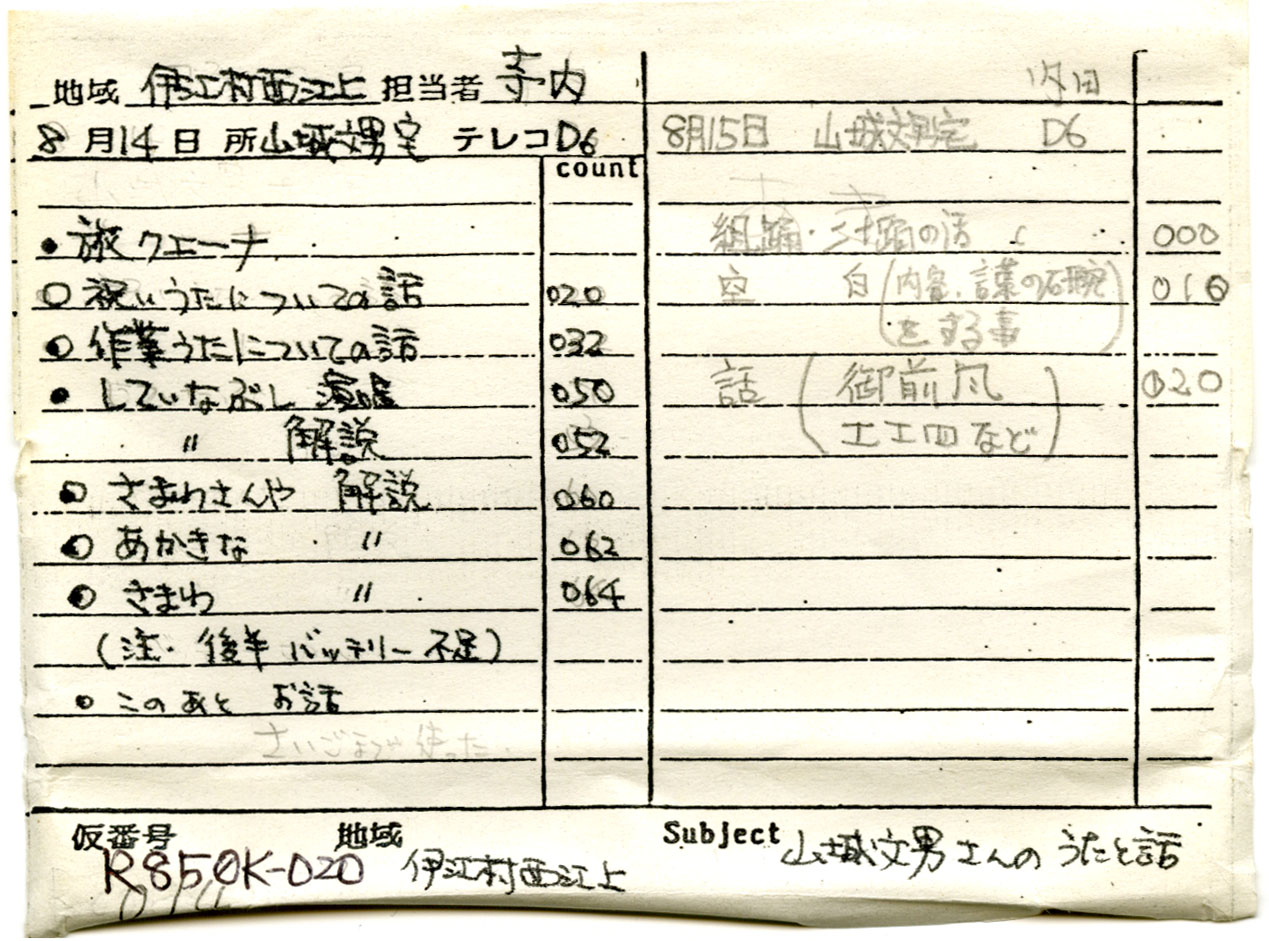 地域 伊江村西江上 担当者 寺内
8月14日 所 山城文男宅 テレコ D6
count
• 旅クエーナ
○ 祝いうたについての話 020
○ 作業うたについての話 032
• していなぶし 演唱 050
〃 解説 052
○ さまわさんや 解説 060
○ あかきな 〃 062
○ さまわ 〃 064
(注・後半 バッテリー 不足)
○ このあと お話
さいごまで使った.
内田
8月15日 山城文男宅 D6
組踊・二才踊の話 000
空 白 (内容、言葉の研究 010
をする事)
話 (御前風 020
工工四など)
仮番号 地域 Subject 山城文男さんの うたと話
R850K-020 伊江村西江上